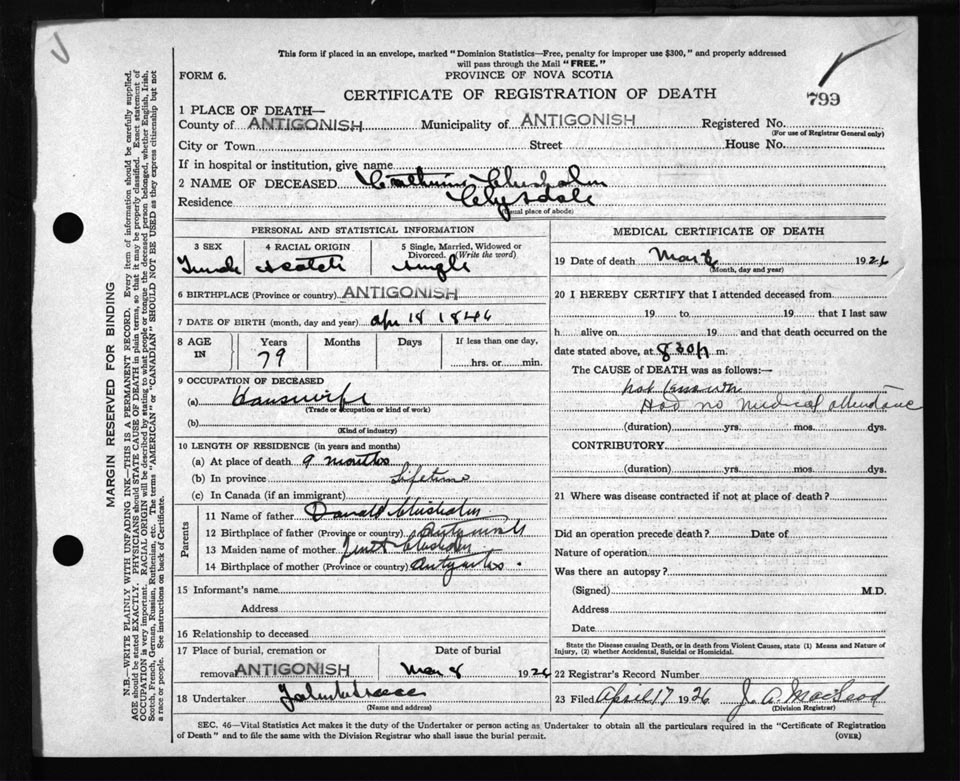 This form if placed in an envelope, marked "Dominion Statistics—Free, penalty for improper use $300," and properly addressed
will pass through the Mail "FREE."
FORM 6.
PROVINCE OF NOVA SCOTIA
CERTIFICATE OF REGISTRATION OF DEATH
799
1 PLACE OF DEATH—
County of ANTIGONISH Municipality of ANTIGONISH Registered No.
(For use of Registrar General only)
City or Town Street House No.
If in hospital or institution, give name
2 NAME OF DECEASED Catherine Chisholm
Residence Clydsdale
(Usual place of abode)
PERSONAL AND STATISTICAL INFORMATION
3 SEX 4 RACIAL ORIGIN 5 Single, Married, Widowed or
Divorced. (Write the word)
Female Scotch Single
6 BIRTHPLACE (Province or country) ANTIGONISH
7 DATE OF BIRTH (month, day and year) Apr 18 1846
8 AGE IN Years Months Days If less than one day,
79 hrs. or min.
9 OCCUPATION OF DECEASED
(a) Housewife
(Trade or occupation or kind of work)
(b)
(Kind of industry)
10 LENGTH OF RESIDENCE (in years and months)
(a) At place of death 9 months
(b) In province Lifetime
(c) In Canada (if an immigrant)
Parents
11 Name of father Donald Chisholm
12 Birthplace of father (Province or country) Antigonish
13 Maiden name of mother Chisholm
14 Birthplace of mother (Province or country)
15 Informant's name
Address
16 Relationship to deceased
17 Place of burial, cremation or Date of burial
removal ANTIGONISH Mar 8 1926
18 Undertaker
(Name and address)
MEDICAL CERTIFICATE OF DEATH
19 Date of death Mar 1926
(Month, day and year)
20 I HEREBY CERTIFY that I attended deceased from
19 to 19 that I last saw
h alive on 19 and that death occurred on
date stated above, at 8 30 p m.
The CAUSE of DEATH was as follows:—
Not known
Had no medical attendance
(duration) yrs. mos. dys.
CONTRIBUTORY
(duration) yrs. mos. dys.
21 Where was disease contracted if not at place of death?
Did an operation precede death? Date of
Nature of operation
Was there an autopsy?
(Signed) M.D.
Address
Date
State the Disease causing Death, or in death from Violent Causes, state (1) Means and Nature of
Injury, (2) whether Accidental, Suicidal or Homicidal.
22 Registrar's Record Number
23 Filed April 17 1926 J. A. MacLeod
(Division Registrar)
SEC. 46—Vital Statistics Act makes it the duty of the Undertaker or person acting as Undertaker to obtain all the particulars required in the "Certificate of Registration
of Death" and to file the same with the Division Registrar who shall issue the burial permit. (OVER)
MARGIN RESERVED FOR BINDING
N.B.—WRITE PLAINLY WITH UNFADING INK—THIS IS A PERMANENT RECORD. Every item of information should be carefully supplied.
AGE should be stated EXACTLY. PHYSICIANS should STATE CAUSE OF DEATH in plain terms, so that it may be properly classified. Exact statement of
OCCUPATION is very important. RACIAL ORIGIN will be described by stating to what people or tongue the deceased person belonged, whether English, Irish,
Scotch, French, German, Russian, Ruthenian, etc. The terms "AMERICAN" or "CANADIAN" SHOULD NOT BE USED as they express citizenship but not
a race or people. See instructions on back of Certificate.